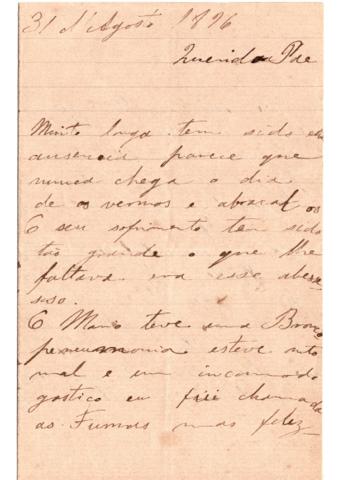 31 d'Agosto 1896
Querido Pae
Muito longa tem sido esta
ausencia parece que
nunca chega o dia
de os vermos e abraçal os
O seu sofrimento tem sido
tão grande o que lhe
faltava era esse
O Mario teve uma Bronco
pneumonia esteve mto
mal e um incomodo
gastico eu fui chamada
as Furnas mas feliz